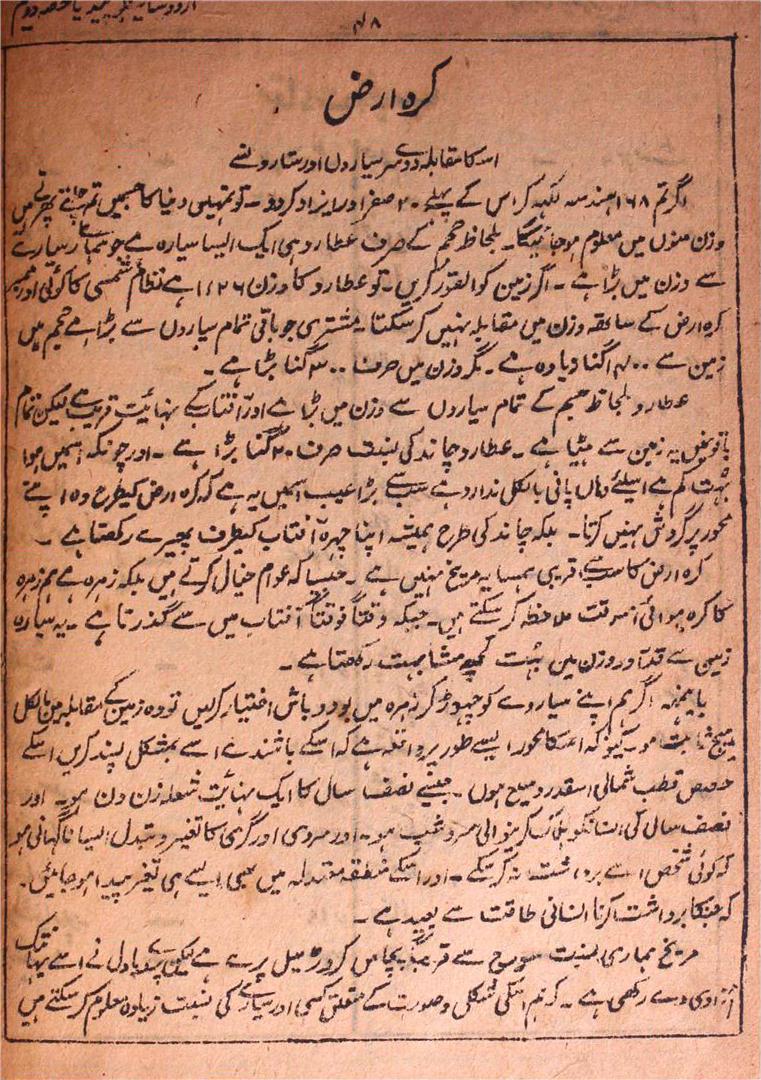 ۴۸
کرہ ارض
اسکا مقابلہ دوسرے سیاروں اور ستاروں سے
اگر تم ۱۶۸ ہندسہ لکھ کر اس کے پہلے ۲۰ صفر اور ایزاد کردو ۔ تو تمہیں دنیا کا جسمیں تم چلتے پھرتے ہیں
وزن منوں میں معلوم ہو جائیگا ۔ بلحاظ حجم کے صرف عطارد ہی ایک ایسا سیارہ ہے جو ہمارے سیارے
سے وزن میں بڑا ہے ۔ اگر زمین کو القور کریں ۔ تو عطارد کا وزن ۱۱۲۶ ہے نظام شمسی کا کوئی اور ممبر
کرہ ارض کے ساتھ وزن میں مقابلہ نہیں کر سکتا ۔ مشتری جو باقی تمام سیاروں سے بڑا ہے حجم میں
زمین سے ۱۴۰۰ گنا زیادہ ہے ۔ مگر وزن میں صرف ۳۰۰ گنا بڑا ہے ۔
عطارد بلحاظ جسم کے تمام سیاروں سے وزن میں بڑا ہے اور آفتاب کے نہائیت قریب ہے لیکن تمام
باتوں میں یہ زمین سے ہیٹا ہے ۔ عطارد چاند کی نسبت صرف ۲۰ گنا بڑا ہے ۔ اور چونکہ اسمیں ہوا
بہت کم ہے اسلئے وہاں پانی بالکل ندارد ہے سب سے بڑا عیب اسمیں یہ ہے کہ کرہ ارض کیطرح وہ اپنے
محور پر گردش نہیں کرتا ۔ بلکہ چاند کی طرح ہمیشہ اپنا چہرہ آفتاب کیطرف پھیرے رکھتا ہے ۔
کرہ ارض کا سب سے قریبی ہمسایہ مریخ نہیں ہے ۔ جیسا کہ عوام خیال کرتے ہیں بلکہ زہرہ ہے ہم زہرہ
کا کرہ ہوائی اسوقت ملاحظہ کر سکتے ہیں ۔ جبکہ وقتاً فوقتاً آفتاب میں سے گذرتا ہے ۔ یہ سیارہ
زمین سے قد اور وزن میں بہت کچھ مشابہت رکھتا ہے ۔
باینہمہ اگر ہم اپنے سیارے کو چھوڑ کر زہرہ میں بود و باش اختیار کرلیں تو وہ زمین کے مقابلہ میں بالکل
ہیچ ثابت ہو ۔ کیونکہ اسکا محور ایسے طور پر واقعہ ہے کہ اسکے باشندے اسے بمشکل پسند کریں اسکے
حصص قطب شمالی اسقدر وسیع ہوں ۔ جیسے نصف سال کا ایک نہائیت شعلہ زن دن ہو ۔ اور
نصف سال کی انسانکو ہلاک کرنیوالی سرد شب ہو ۔ اور سردی اور گرمی کا تغیر و تبدل ایسا ناگہانی ہو
کہ کوئی شخص اسے برداشت نہ کر سکے ۔ اور اسکے منطقہ معتدلہ میں بھی ایسے ہی تغیر پیدا ہو جائیں ۔
کہ جنکا برداشت کرنا انسانی طاقت سے بعید ہے ۔
مریخ ہماری نسبت سورج سے قریباً پچاس کروڑ میل پرے ہے لیکن بادل نے اسے یہانتک
آزادی دے رکھی ہے ۔ کہ ہم اسکی شکل و صورت کے متعلق کسی اور سیارے کی نسبت زیادہ معلوم کر سکتے ہیں